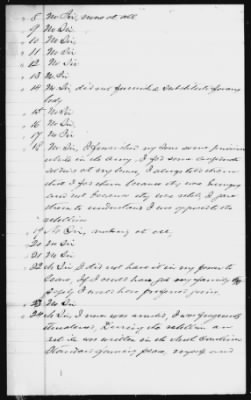 8 No Sir, none at all
9 No Sir
10 No Sir,
11 No Sir
12 No Sir
13 No Sir
14 No Sir did not furnish a substitute for any
body
15 No Sir
16 No Sir,
17 No Sir
18 No Sir, I furnished my sons some provisions
while in the army, I fed some confederate
soldiers at my house, I always told them
that I fed them because they was hungry
and not because they was rebels, I gave
them to understand I was opposed to the
rebellion
19 No Sir, nothing at all,
20 No Sir
21 No Sir
22 No Sir I did not have it in my power to
leave, If I could have got my family
I would have preferred going
23 No Sir
24 No Sir, I never was arrested, I was frequently
threatened, During the rebellion an
was written in the North Carolina
Standard journal, myself and